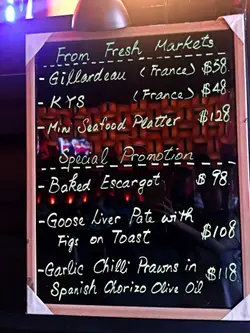 From Fresh Markets
- Gillardeau (France) $58
- KYS (France) $48
- Mini Seafood Platter $128
Special Promotion
- Baked Escargot $98
- Goose Liver Pate with
Figs on Toast $108
- Garlic Chilli Prawns in
Spanish Chorizo Olive Oil $118